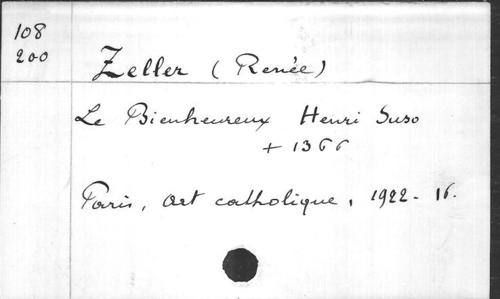 108
200
Zeller (Renée)
Le Bienheureux Henri Suso
+ 1366
Paris, Art catholique, 1922. 16.